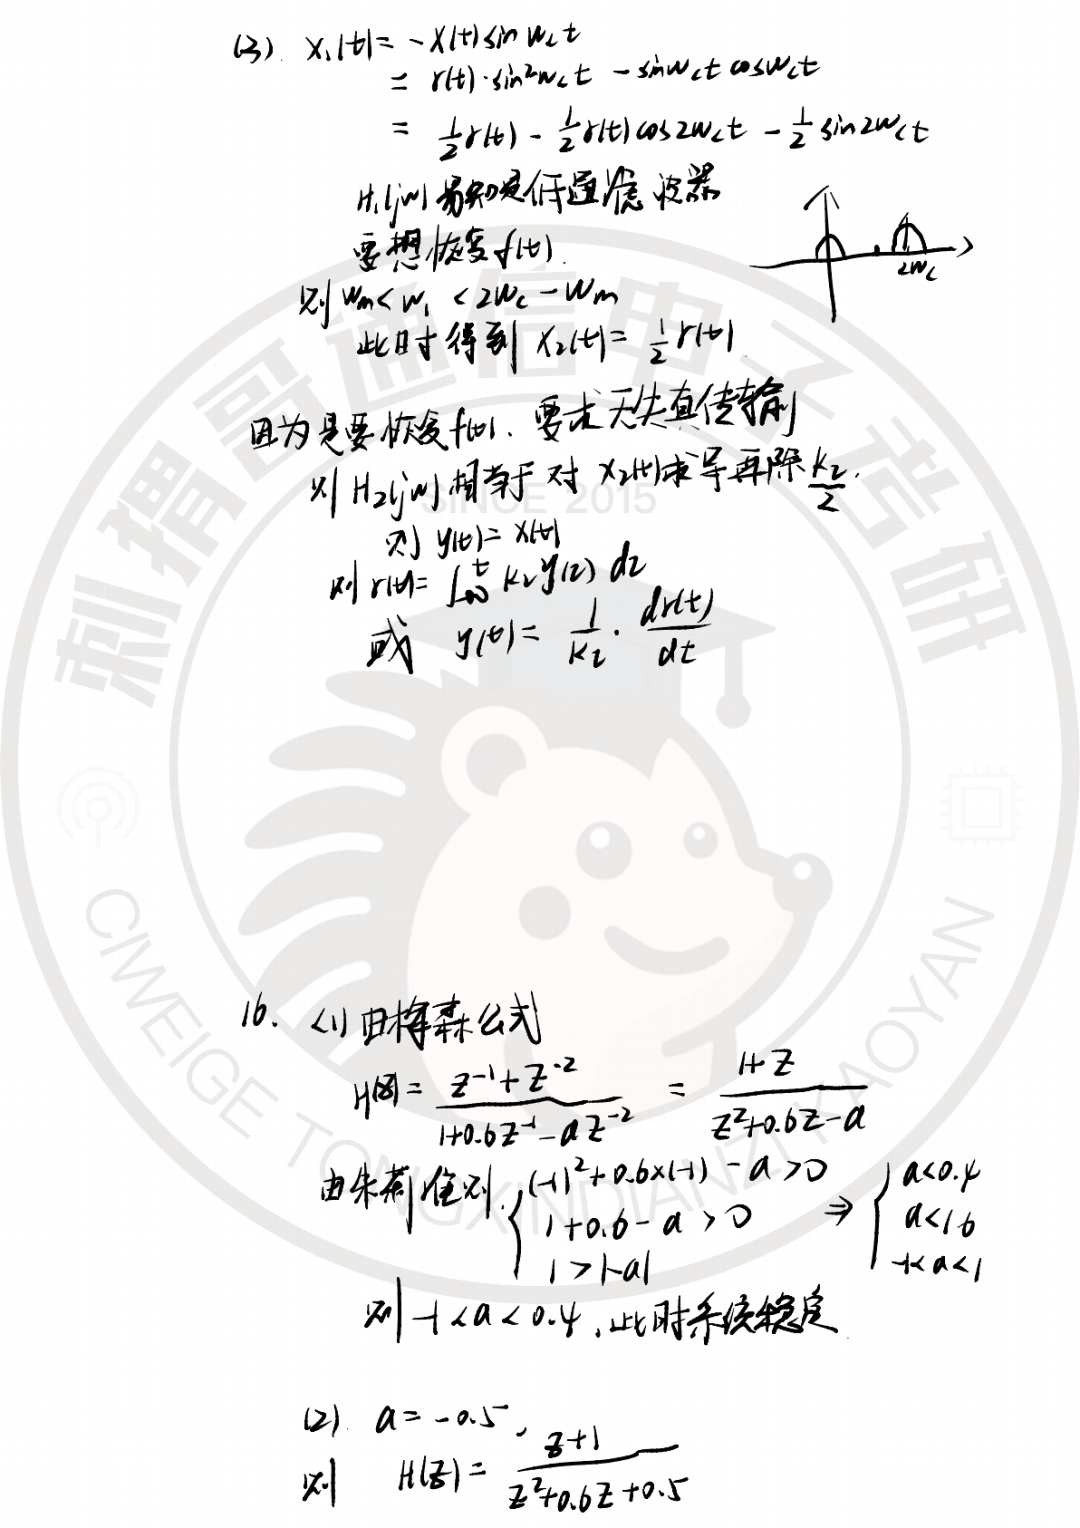 (3). x₁(t)= -x(t) sin w_c t
= r(t)·sin²w_c t - sin w_c t cos w_c t
= ½r(t) - ½r(t) cos2w_c t - ½ sin2w_c t
H₁(jw)易知是低通滤波器
要想恢复f(t).
2w_c
则 w_m < w₁ < 2w_c - w_m
此时得到 x₂(t)= ½ r(t)
因为是要恢复f(t). 要求无失真传输
则 H₂(jw)相当于对 x₂(t)求导再除 k₂/2.
则 y(t)= x(t)
则 r(t)= ∫_{-∞}^{t} k₂ y(τ) dτ
或 y(t)= 1/k₂ · dr(t)/dt
刺猬哥通信电子考研
SINCE 2015
CIWEIGE TONGXINDIANZI KAOYAN
16. (1) 由梅森公式
H(z)= (z⁻¹+z⁻²)/(1+0.6z⁻¹-az⁻²) = (1+z)/(z²+0.6z-a)
由朱莉准则. { (-1)²+0.6×(-1) - a >0 ⇒ { a<0.4
1+0.6-a >0 a<1.6
1 > |-a| -1<a<1
则 -1<a<0.4, 此时系统稳定
(2) a= -0.5,
则 H(z)= (z+1)/(z²+0.6z+0.5)